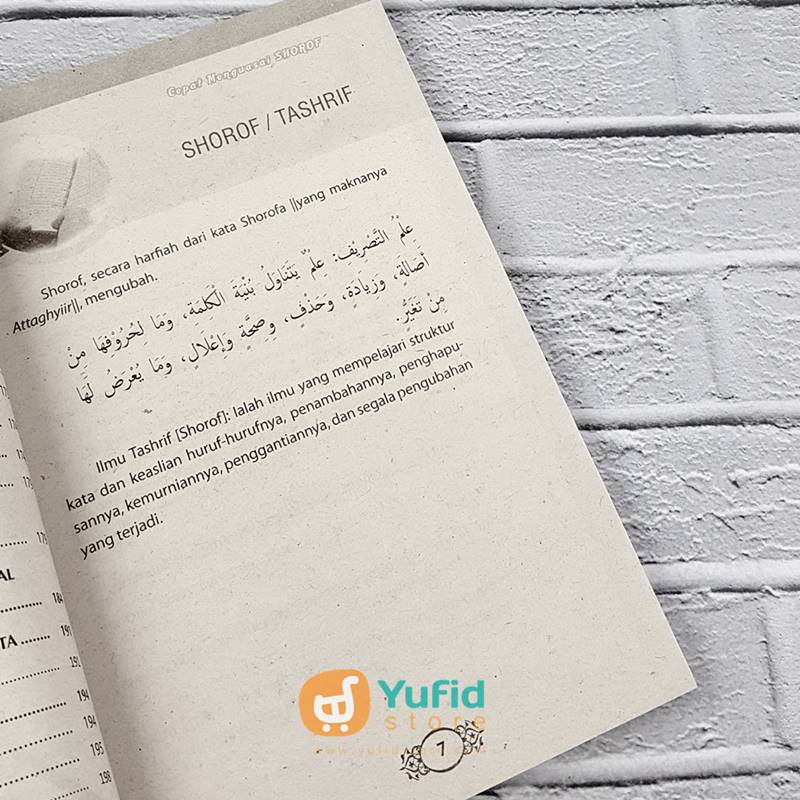 Cepat Menguasai SHOROF
SHOROF / TASHRIF
Shorof, secara harfiah dari kata Shorofa ||yang maknanya
Attaghyiir||, mengubah.
عِلْمُ التَّصْرِيْفِ: عِلْمٌ يَتَنَاوَلُ بُنْيَةَ الْكَلِمَةِ، وَمَا لِحُرُوْفِهَا مِنْ
أَصَالَةٍ، وَزِيَادَةٍ، وَحَذْفٍ، وَصِحَّةٍ وَإِعْلَالٍ، وَمَا يُعْرَضُ لَهَا
مِنْ تَغَيُّرٍ.
Ilmu Tashrif [Shorof]: Ialah ilmu yang mempelajari struktur
kata dan keaslian huruf-hurufnya, penambahannya, penghapu-
sannya, kemurniannya, penggantiannya, dan segala pengubahan
yang terjadi.
AL
184
TA ........ 191
194
194
195
198
Yufid
store
1